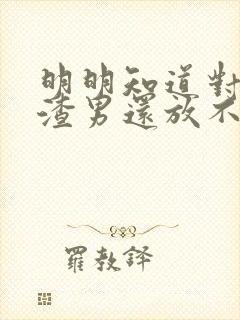 明明知道對
渣男還放不
羅教鐸